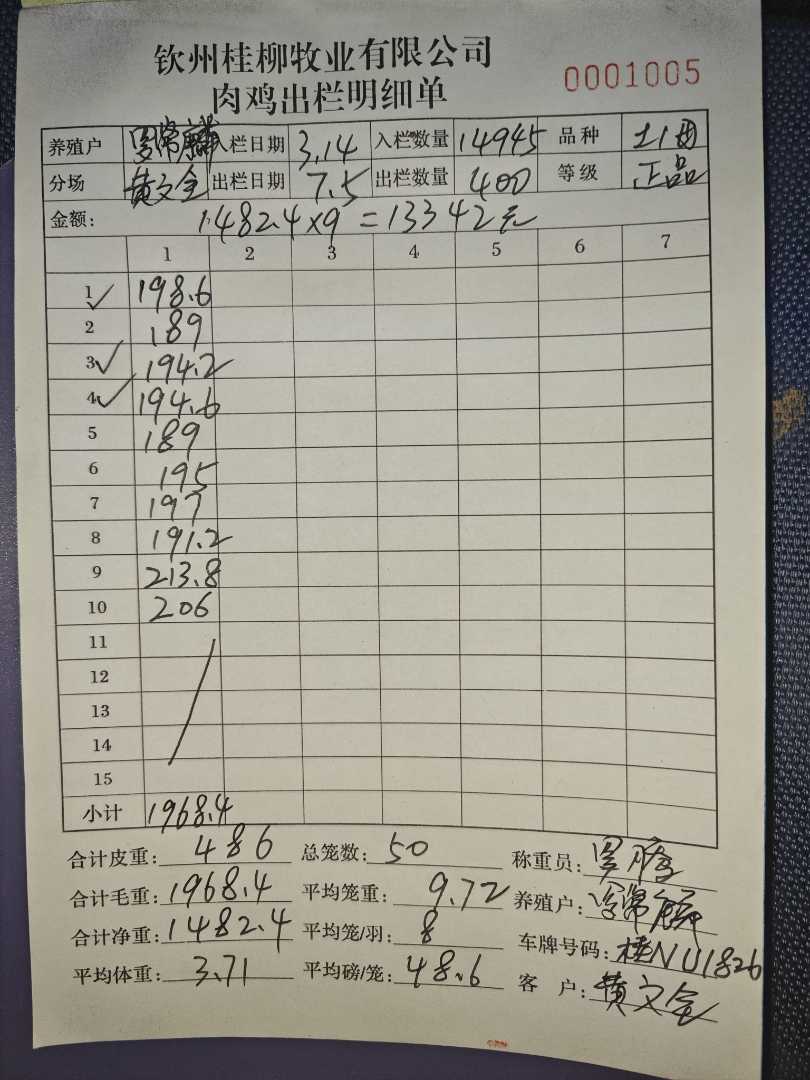 钦州桂柳牧业有限公司
0001005
肉鸡出栏明细单
养殖户 入栏日期 3.14 入栏数量 14945 品种
分场 黄文全 出栏日期 7.5 出栏数量 400 等级 正品
金额: 1482.4×9=13342元
1 2 3 4 5 6 7
1 198.6
2 189
3 194.2
4 194.6
5 189
6 195
7 197
8 191.2
9 213.8
10 206
11
12
13
14
15
小计 1968.4
合计皮重: 486 总笼数: 50 称重员:
合计毛重: 1968.4 平均笼重: 9.72 养殖户:
合计净重: 1482.4 平均笼/羽: 8 车牌号码: 桂NU1826
平均体重: 3.71 平均磅/笼: 48.6 客户: 黄文全